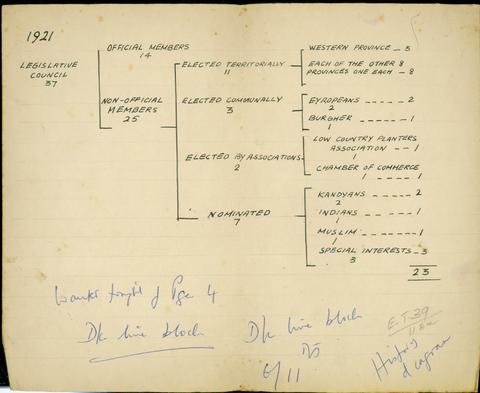 1921
LEGISLATIVE COUNCIL
37
OFFICIAL MEMBERS
14
NON-OFFICIAL MEMBERS
25
ELECTED TERRITORIALLY
11
WESTERN PROVINCE - 3
EACH OF THE OTHER 8
PROVINCES ONE EACH - 8
ELECTED COMMUNALLY
3
EYROPEANS ----- 2
2
BURGHER ---- 1
1
ELECTED BY ASSOCIATIONS
2
LOW COUNTRY PLANTERS
ASSOCIATION -- 1
1
CHAMBER OF COMMERCE
1 ----- 1
NOMINATED
7
KANDYANS ---- 2
2
INDIANS -- ---- 1
1
MUSLIM ------ 1
1
SPECIAL INTERESTS - 3
3
23
Wanted tonight of Pge 4
D/c line block
D/c line block
6/11
E.T. 39
History